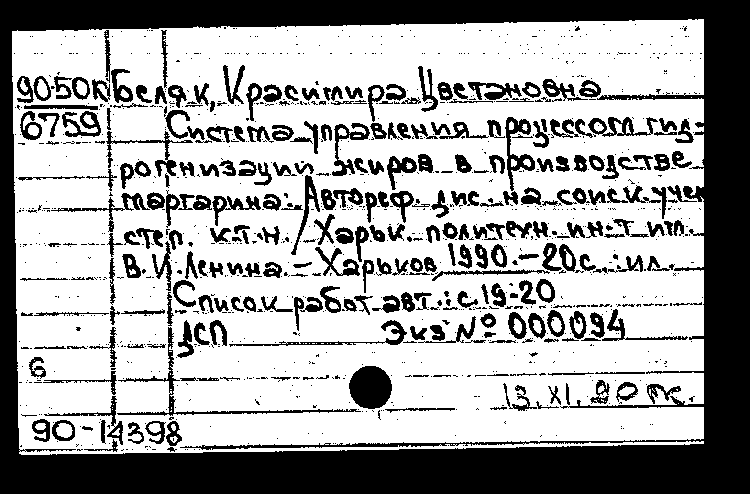 90-50К Беляк, Красимира Цветановна
6759 Система управления процессом гид-
рогенизации жиров в производстве
маргарина: Автореф. дис. на соиск. учен
степ. к.т.н. / Харьк. политехн. ин-т им.
В.И. Ленина. – Харьков, 1990. – 20 с.: ил.
Список работ авт.: с. 19-20
ДСП Экз № 000094
6
13. XI. 90
90-14398